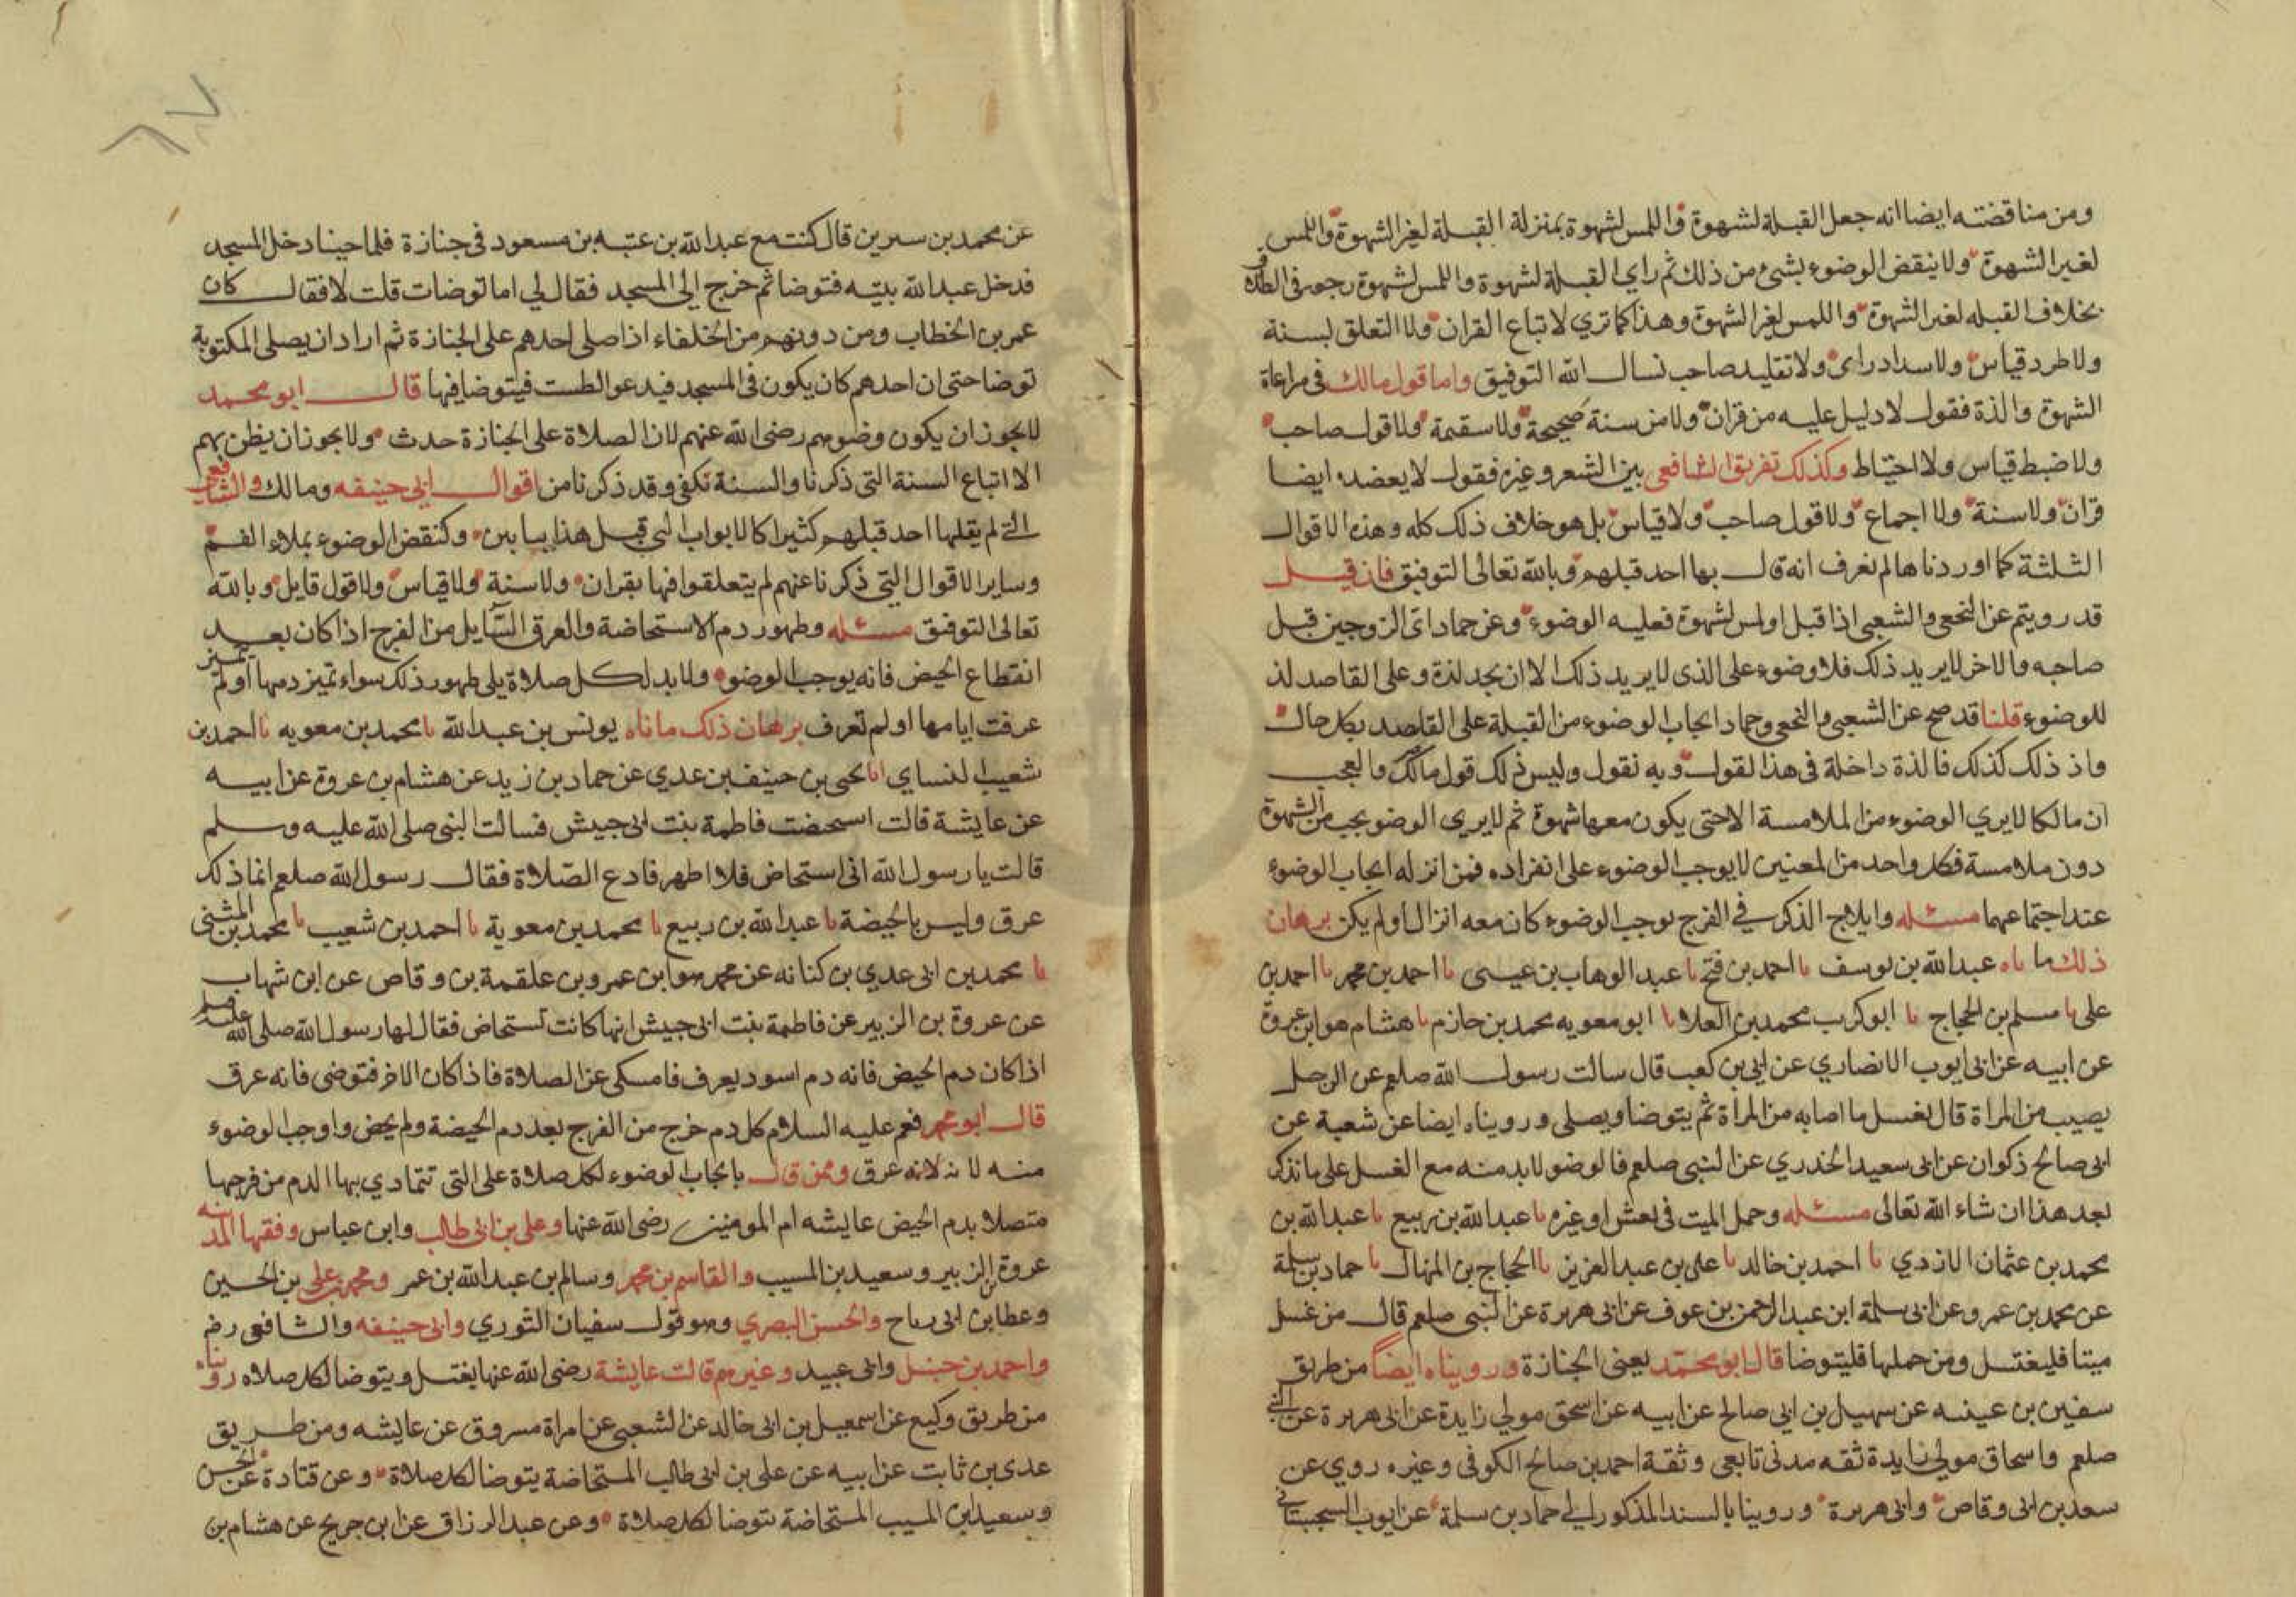 ومن مناقضته ايضا انه جعل القبلة لشهوة واللمس لشهوة بمنزلة القبلة لغير الشهوة واللمس
لغير الشهوة ولا ينقض الوضوء بشئ من ذلك ثم راي القبلة لشهوة واللمس لشهوة رجوعه في الطلاق
بخلاف القبله لغير الشهوة واللمس لغير الشهوة وهذا كما تري لا تباع القران ولا التعلق لبسنة
ولا طرد قياس ولا سداد راى ولا تقليد صاحب نسال الله التوفيق واما قول مالك في مراعاة
الشهوة والذة فقول لا دليل عليه من قران ولا من سنة صحيحة ولا سقيمة ولا قول صاحب
ولا ضبط قياس ولا احتياط وكذلك تفريق الشافعي بين الشعر وغيره فقول لا يعضده ايضا
قران ولا سنة ولا اجماع ولا قول صاحب ولا قياس بل هو خلاف ذلك كله وهذه الاقوال
الثلثة كما اوردناها لم نعرف انه قال بها احد قبلهم وبالله تعالى التوفيق فان قيل
قد رويتم عن النخعي والشعبي اذا قبل او لمس لشهوة فعليه الوضوء وعن حماد اى الزوجين قبل
صاحبه والاخر لا يريد ذلك فلا وضوء على الذى لا يريد ذلك الا ان يجد لذة وعلى القاصد لذ
للوضوء قلنا قد صح عن الشعبي والنخعي وحماد ايجاب الوضوء من القبلة على القاصد بكل حال
واذ ذلك كذلك فالذة داخلة في هذا القول وبه نقول وليس ذلك قول مالك والعجب
ان مالكا لا يري الوضوء من الملامسة الا حتى يكون معها شهوة ثم لا يري الوضو يجب من الشهوة
دون ملامسة فكل واحد من المعنيين لا يوجب الوضوء على انفراده فمن اين له ايجاب الوضوء
عند اجتماعهما مسئله وايلاج الذكر في الفرج يوجب الوضوء كان معه انزال او لم يكن برهان
ذلك ما ناه عبد الله بن يوسف نا احمد بن فتح نا عبد الوهاب بن عيسى نا احمد بن محمد نا احمد بن
على نا مسلم بن الحجاج نا ابو كرب محمد بن العلا نا ابو معويه محمد بن حازم نا هشام هو ابن عروة
عن ابيه عن ابى ايوب الانصاري عن ابي بن كعب قال سالت رسول الله صلعم عن الرجل
يصيب من المراة قال يغسل ما اصابه من المرأة ثم يتوضا ويصلى ورويناه ايضا عن شعبة عن
ابى صالح ذكوان عن ابى سعيد الخدري عن النبي صلعم فالوضو لابد منه مع الغسل على ما نذكر
بعد هذا ان شاء الله تعالى مسئله وحمل الميت في نعش او غيره نا عبد الله بن ربيع نا عبد الله بن
محمد بن عثمان الازدي نا احمد بن خالد نا على بن عبد العزيز نا الحجاج بن المنهال نا حماد بن سلمة
عن محمد بن عمرو عن ابى سلمة ابن عبد الرحمن بن عوف عن ابى هريرة عن النبى صلعم قال من غسل
ميتا فليغتسل ومن حملها فليتوضا قال ابو محمد يعنى الجنازة ورويناه ايضاً من طريق
سفين بن عينه عن سهيل بن ابي صالح عن ابيه عن اسحق مولي زايدة عن ابى هريرة عن النبي
صلعم واسحاق مولي زايدة ثقه مدنى تابعي وثقة احمد بن صالح الكوفى وغيره روي عن
سعد بن ابى وقاص وابى هريرة وروينا بالسند المذكور الى حماد بن سلمة عن ايوب السجستاني
عن محمد بن سيرين قال كنت مع عبد الله بن عتبه بن مسعود في جنازة فلما جينا دخل المسجد
فدخل عبد الله بيته فتوضا ثم خرج الى المسجد فقال لي اما توضات قلت لا فقال كان
عمر بن الخطاب ومن دونهم من الخلفاء اذا صلى احدهم على الجنازة ثم اراد ان يصلى المكتوبة
توضا حتى ان احدهم كان يكون في المسجد فيدعو الطست فيتوضا فيها قال ابو محمد
لا يجوز ان يكون وضوهم رضى الله عنهم لان الصلاة على الجنازة حدث ولا يجوز ان يظن بهم
الا اتباع السنة التى ذكرنا والسنة تكفى وقد ذكرنا من اقوال ابي حنيفه ومالك والشافعي
التى لم يقلها احد قبلهم كثيرا كالابواب التى قبل هذا ببابين وكنقض الوضوء بملاء الفم
وساير الاقوال التي ذكرنا عنهم لم يتعلقوا فيها بقران ولا سنة ولا قياس ولا قول قايل وبالله
تعالى التوفيق مسئله وظهور دم الاستحاضة والعرق السايل من الفرج اذا كان بعد
انقطاع الحيض فانه يوجب الوضو ولابد لكل صلاة يلى ظهور ذلك سواء تميز دمها او لم تميز
عرفت ايامها او لم تعرف برهان ذلك ما ناه يونس بن عبد الله نا محمد بن معويه نا احمد بن
شعيب النساي انا يحيى بن حنيف بن عدي عن حماد بن زيد عن هشام بن عروة عن ابيه
عن عايشة قالت استحيضت فاطمة بنت ابى حبيش فسالت النبى صلى الله عليه وسلم
قالت يا رسول الله انى استحاض فلا اطهر فادع الصلاة فقال رسول الله صلعم انما ذلك
عرق وليس بالحيضة نا عبد الله بن ربيع نا محمد بن معوية نا احمد بن شعيب نا محمد بن المثنى
نا محمد بن ابى عدي بن كنانه عن محمد هو ابن عمرو بن علقمة بن وقاص عن ابن شهاب
عن عروة بن الزبير عن فاطمة بنت ابى حبيش انها كانت تستحاض فقال لها رسول الله صلى الله عليه وسلم
اذا كان دم الحيض فانه دم اسود يعرف فامسكى عن الصلاة فاذا كان الاخر فتوضى فانه عرق
قال ابو محمد فعم عليه السلام كل دم خرج من الفرج بعد دم الحيضة ولم يخص واوجب الوضوء
منه لانه عرق وممن قال بايجاب الوضوء لكل صلاة على التى تتمادي بها الدم من فرجها
متصلا بدم الحيض عايشه ام المومنين رضى الله عنها وعلى بن ابى طالب وابن عباس وفقها المدينه
عروة بن الزبير وسعيد بن المسيب والقاسم بن محمد وسالم بن عبد الله بن عمر ومحمد بن علي بن الحسين
وعطا بن ابى رباح والحسن البصري وهو قول سفيان الثوري وابى حنيفه والشافعى رضه
واحمد بن حنبل وابى عبيد وغيرهم قالت عايشة رضى الله عنها يغتسل ويتوضا لكل صلاه رويناه
من طريق وكيع عن اسمعيل بن ابى خالد عن الشعبي عن امراة مسروق عن عايشه ومن طريق
عدى بن ثابت عن ابيه عن على بن ابى طالب المستحاضة يتوضا لكل صلاة وعن قتادة عن الحسن
وسعيد ابن المسيب المستحاضة تتوضا لكل صلاة وعن عبد الرزاق عن ابن جريج عن هشام بن